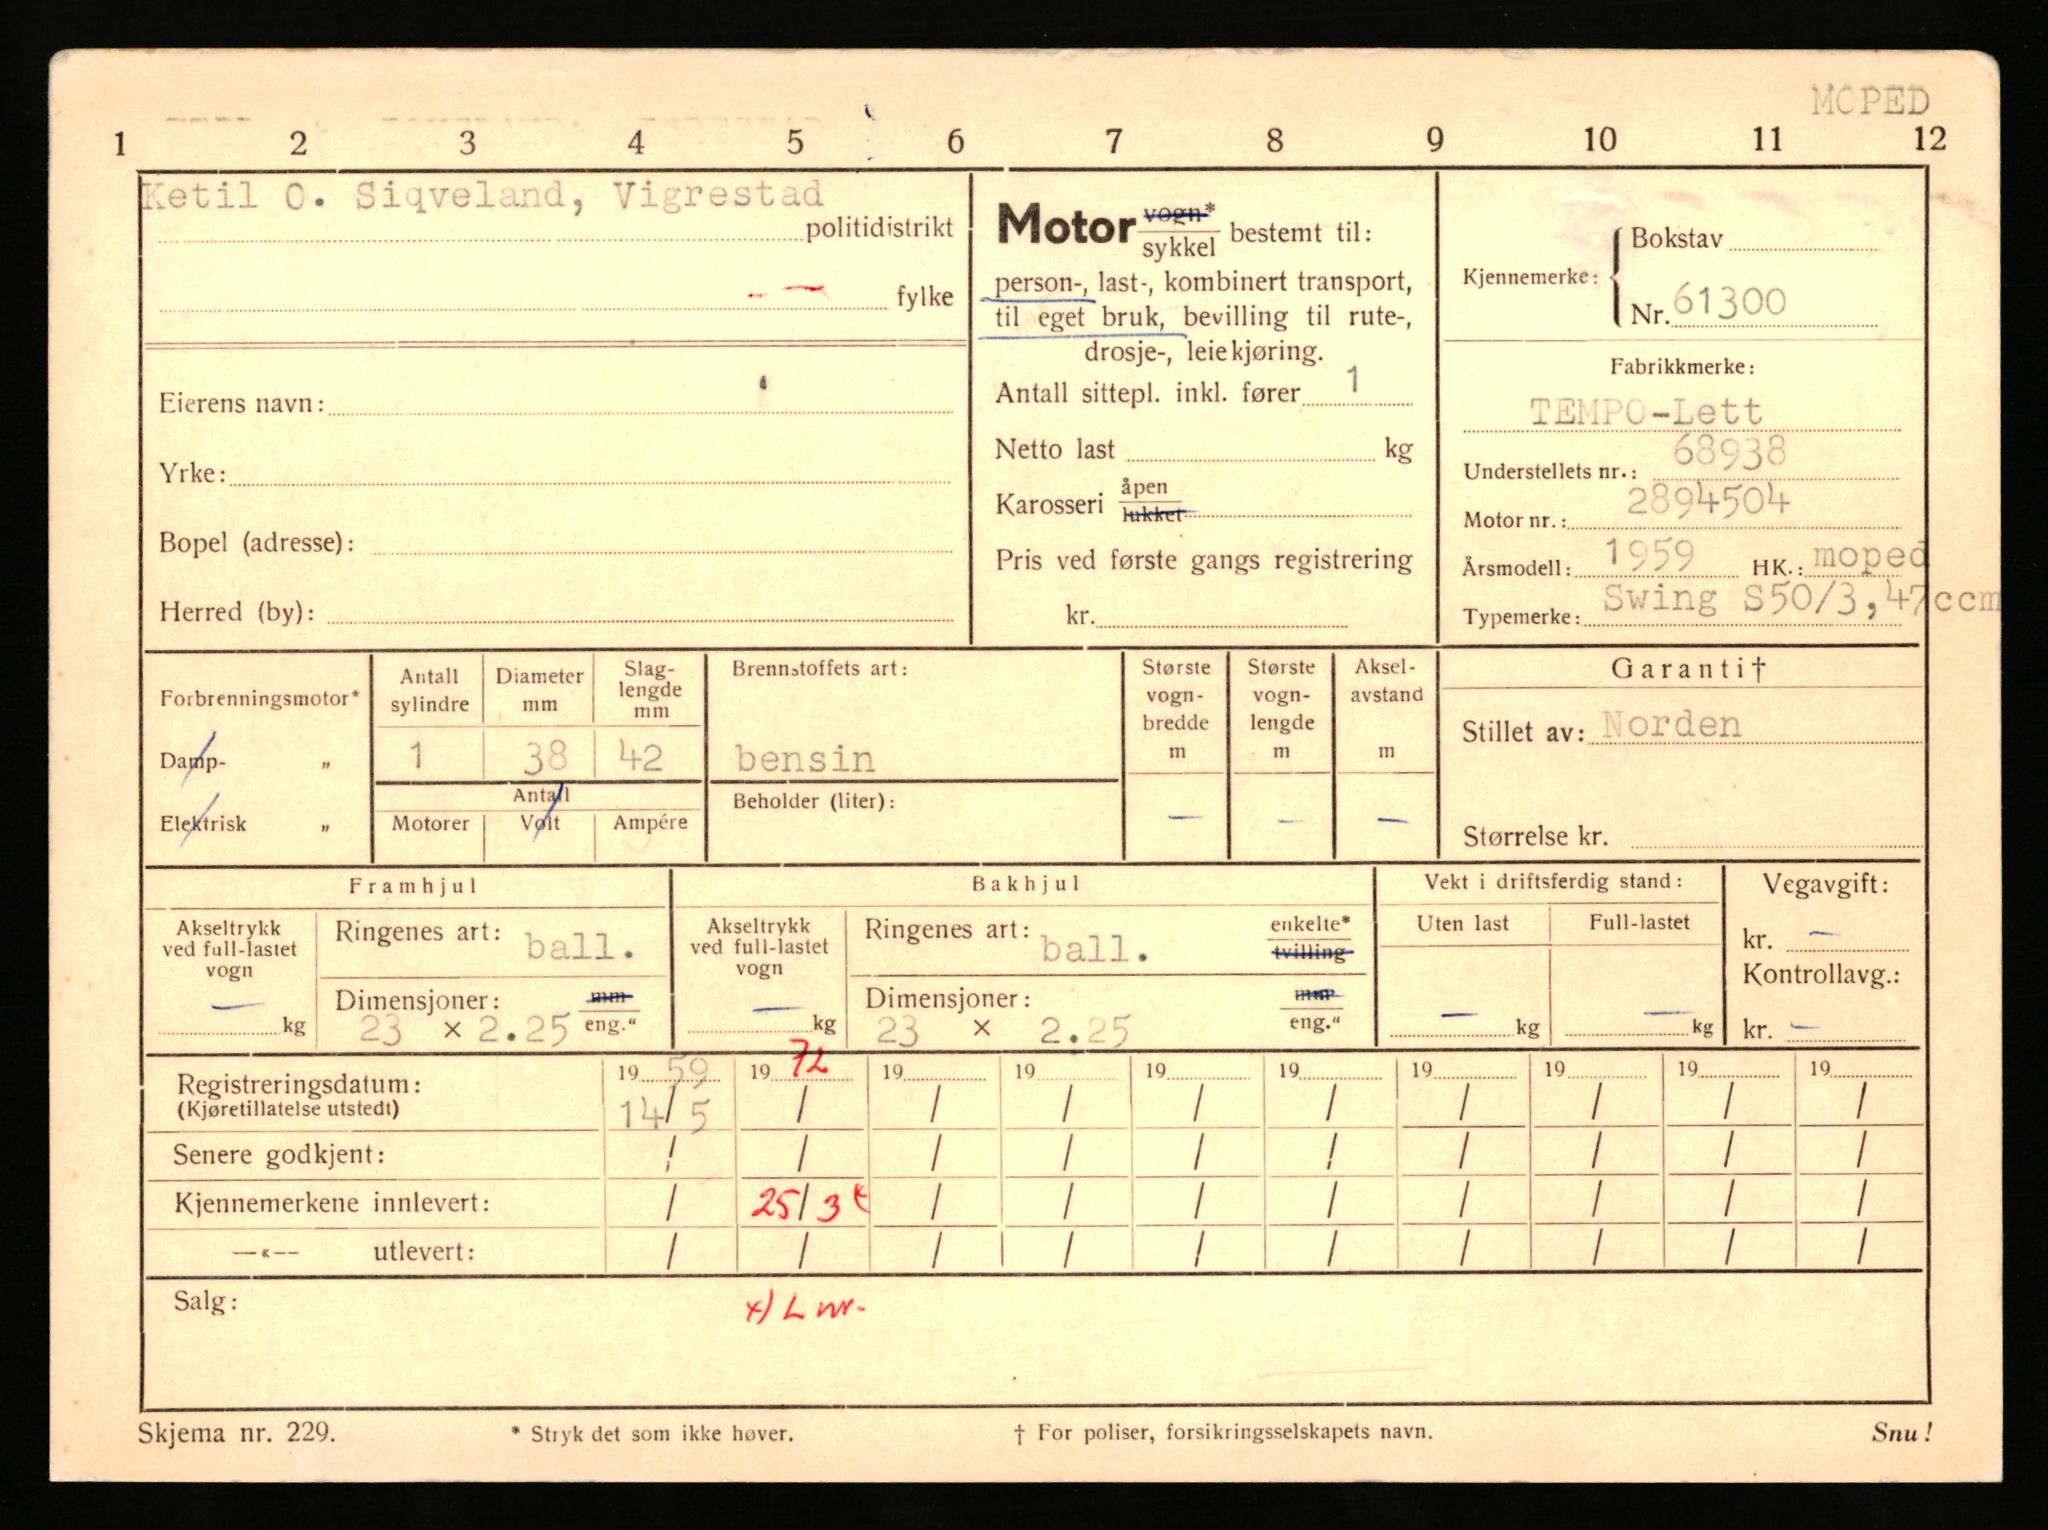 MOPED
1 2 3 4 5 6 7 8 9 10 11 12
Ketil O. Siqveland, Vigrestad
politidistrikt
fylke
Eierens navn:
Yrke:
Bopel (adresse):
Herred (by):
Motor vogn*
sykkel bestemt til:
person-, last-, kombinert transport,
til eget bruk, bevilling til rute-,
drosje-, leiekjøring.
Antall sittepl. inkl. fører 1
Netto last kg
Karosseri åpen
lukket
Pris ved første gangs registrering
kr.
Kjennemerke: Bokstav
Nr. 61300
Fabrikkmerke:
TEMPO-Lett
Understellets nr.: 68938
Motor nr.: 2894504
Årsmodell: 1959 HK.: moped
Typemerke: Swing S50/3,47ccm
Forbrenningsmotor*
Damp- „
Elektrisk „
Antall sylindre
1
Diameter mm
38
Slag-
lengde
mm
42
Antall
Motorer Volt Ampére
Brennstoffets art:
bensin
Beholder (liter):
Største
vogn-
bredde
m
—
Største
vogn-
lengde
m
—
Aksel-
avstand
m
—
Garanti†
Stillet av: Norden
Størrelse kr.
Framhjul
Akseltrykk
ved full-lastet
vogn
— kg
Ringenes art: ball.
Dimensjoner: mm
23 × 2.25 eng."
Bakhjul
Akseltrykk
ved full-lastet
vogn
— kg
Ringenes art: ball. enkelte*
tvilling
Dimensjoner: mm
23 × 2.25 eng."
Vekt i driftsferdig stand:
Uten last Full-lastet
— kg — kg
Vegavgift:
kr. —
Kontrollavg.:
kr. —
19 59 19 72 19 19 19 19 19 19 19 19
Registreringsdatum: 14/5 / / / / / / / / /
(Kjøretillatelse utstedt)
Senere godkjent: / / / / / / / / / /
Kjennemerkene innlevert: / 25/3 x / / / / / / / /
—«— utlevert: / / / / / / / / / /
Salg: x) L nr.
Skjema nr. 229. * Stryk det som ikke høver. † For poliser, forsikringsselskapets navn. Snu!